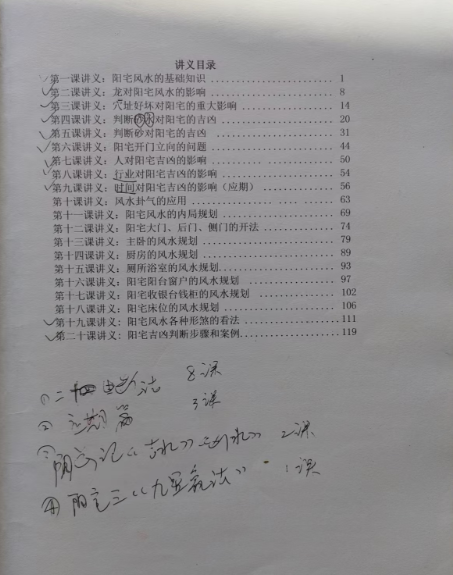 讲义目录
第一课讲义：阳宅风水的基础知识 ........................ 1
第二课讲义：龙对阳宅风水的影响 ........................ 8
第三课讲义：穴址好坏对阳宅的重大影响 .................. 14
第四课讲义：判断水对阳宅的吉凶 ........................ 20
第五课讲义：判断砂对阳宅的吉凶 ........................ 31
第六课讲义：阳宅开门立向的问题 ........................ 44
第七课讲义：人对阳宅吉凶的影响 ........................ 50
第八课讲义：行业对阳宅吉凶的影响 ...................... 54
第九课讲义：时间对阳宅吉凶的影响（应期） .............. 56
第十课讲义：风水卦气的应用 ............................ 63
第十一课讲义：阳宅风水的内局规划 ...................... 69
第十二课讲义：阳宅大门、后门、侧门的开法 .............. 74
第十三课讲义：主卧的风水规划 .......................... 79
第十四课讲义：厨房的风水规划 .......................... 89
第十五课讲义：厕所浴室的风水规划 ...................... 93
第十六课讲义：阳宅阳台窗户的风水规划 .................. 97
第十七课讲义：阳宅收银台钱柜的风水规划 ................ 102
第十八课讲义：阳宅床位的风水规划 ...................... 106
第十九课讲义：阳宅风水各种形煞的看法 .................. 111
第二十课讲义：阳宅吉凶判断步骤和案例 .................. 119
① 二 法 8课
② 应期篇 3课
③ 2课
④ 阳宅三《九星 法》 1课